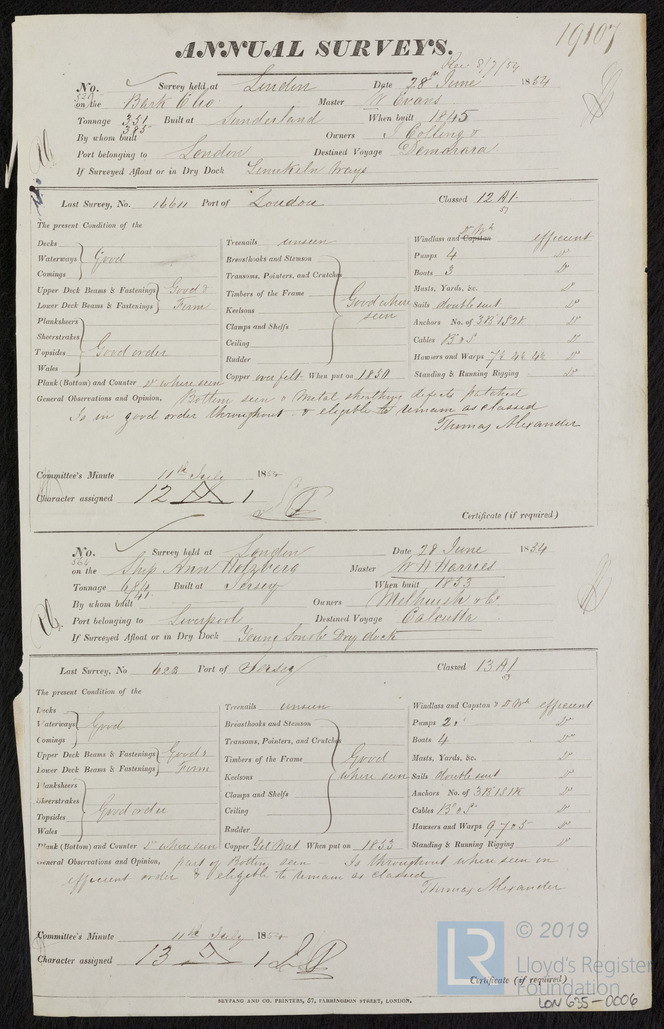 19107
ANNUAL SURVEYS.
8/7/54
No. Survey held at London Date 28th June 1854
on the Bark Clio Master W Evans
Tonnage 351 385 Built at Sunderland When built 1845
By whom built Owners J Colling &
Port belonging to London Destined Voyage Demarara
If Surveyed Afloat or in Dry Dock Limekiln Ways
Last Survey, No. 16611 Port of London Classed 12 A1
The present Condition of the
Decks
Waterways Good
Comings
Upper Deck Beams & Fastenings Good &
Lower Deck Beams & Fastenings Firm
Planksheers
Sheerstrakes
Topsides Good order
Wales
Plank (Bottom) and Counter Do where seen
Treenails unseen
Breasthooks and Stemson
Transoms, Pointers, and Crutches
Timbers of the Frame Good where
Keelsons seen
Clamps and Shelfs
Ceiling
Rudder
Copper over felt When put on 1850
Windlass and Capstan efficient
Pumps 4 Do
Boats 3 Do
Masts, Yards, &c. Do
Sails double suit Do
Anchors No. of 3B 1S 2K Do
Cables B & S Do
Hawsers and Warps 7½ 4½ 4½ Do
Standing & Running Rigging Do
General Observations and Opinion, Bottom seen & Metal sheathing defects patched
Is in good order throughout & eligible to remain as classed
Thomas Alexander
Committee's Minute 11th July 1854
Character assigned 12 A 1
Certificate (if required)
No. Survey held at London Date 28 June 1854
on the Ship Ann Holzberg Master W H Harries
Tonnage 684 741 Built at Jersey When built 1853
By whom built Owners Melhuish & Co
Port belonging to Liverpool Destined Voyage Calcutta
If Surveyed Afloat or in Dry Dock Young Sons Dry dock
Last Survey, No Port of Jersey Classed 13 A1
53
The present Condition of the
Decks
Waterways Good
Comings
Upper Deck Beams & Fastenings Good &
Lower Deck Beams & Fastenings Firm
Planksheers
Sheerstrakes
Topsides Good order
Wales
Plank (Bottom) and Counter Do where seen
Treenails unseen
Breasthooks and Stemson
Transoms, Pointers, and Crutches
Timbers of the Frame Good
Keelsons where seen
Clamps and Shelfs
Ceiling
Rudder
Copper Yel Metl When put on 1853
Windlass and Capstan & Do Wh efficient
Pumps 2 Do
Boats 4 Do
Masts, Yards, &c. Do
Sails double suit Do
Anchors No. of 3B 1S 1K Do
Cables B & S Do
Hawsers and Warps 9 7 & 5 Do
Standing & Running Rigging Do
General Observations and Opinion, part of Bottom seen - Is throughout where seen in
efficient order & eligible to remain as classed
Thomas Alexander
Committee's Minute 11th July 1854
Character assigned 13 A 1
Certificate (if required)
SEYFANG AND CO. PRINTERS, 57, FARRINGDON STREET, LONDON.
LR © 2019
Lloyd's Register
Foundation
LON 635-0006